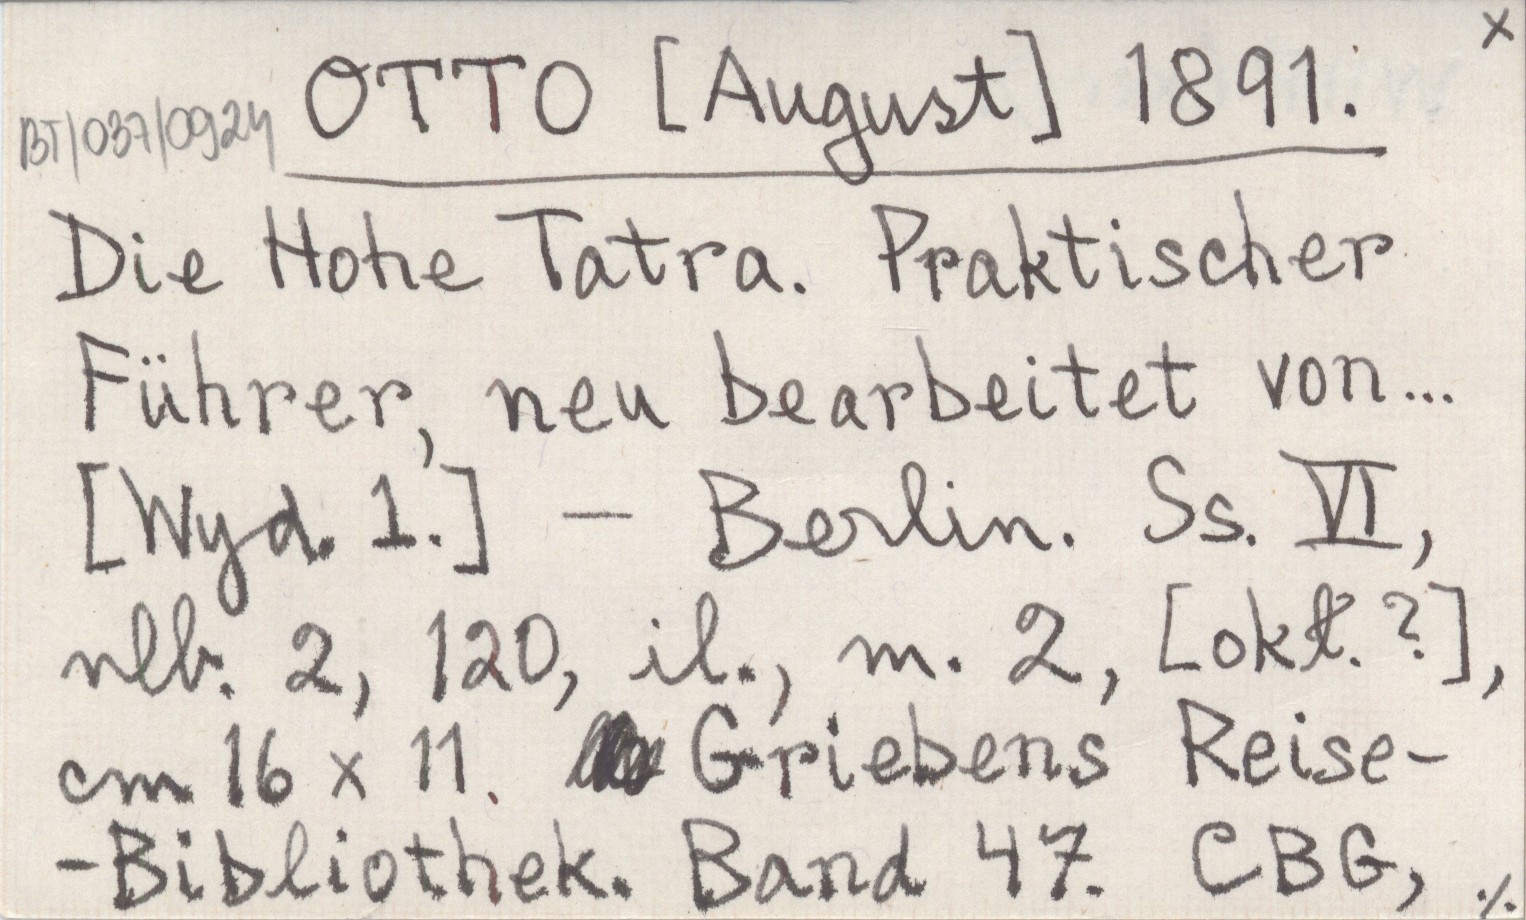 x
OTTO [August] 1891.
BT/037/0924
Die Hohe Tatra. Praktischer
Führer, neu bearbeitet von...
[Wyd. 1.] – Berlin. Ss. VI,
nlb. 2, 120, il., m. 2, [okł. ?],
cm 16 x 11. Griebens Reise-
-Bibliothek. Band 47. CBG, ./.